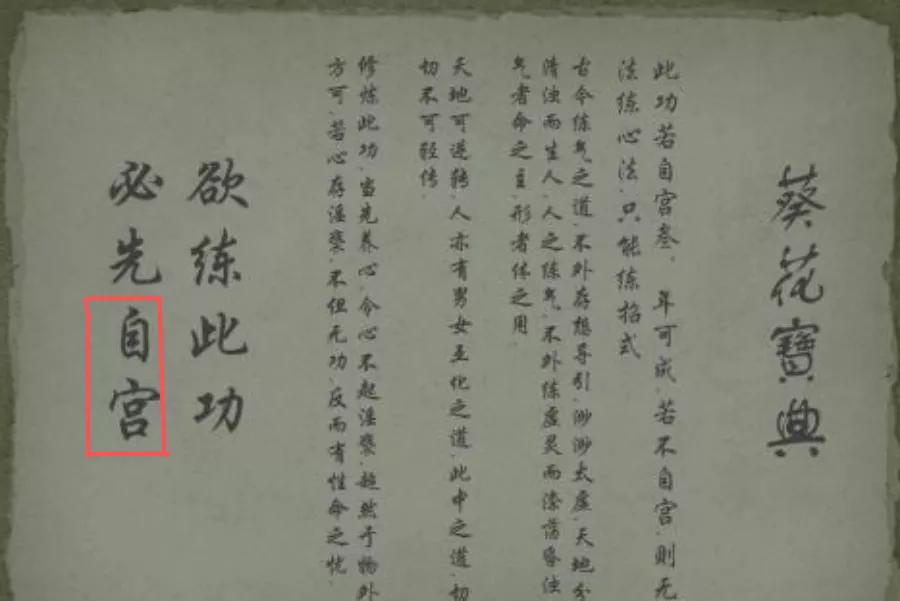 葵花寶典
此功若自宫叁、年可成,若不自宫,则无
法练心法,只能练招式
古今练气之道,不外存想导引,渺渺太虚,天地分
清浊而生人,人之练气,不外练虚灵而涤荡昏浊
气者命之主,形者体之用
天地可逆转,人亦有男女互化之道,此中之道,切
切不可轻传
修炼此功,当先养心,令心不起淫亵,超然于物外
方可,若心存淫亵,不但无功,反而有性命之忧
欲练此功
必先自宫